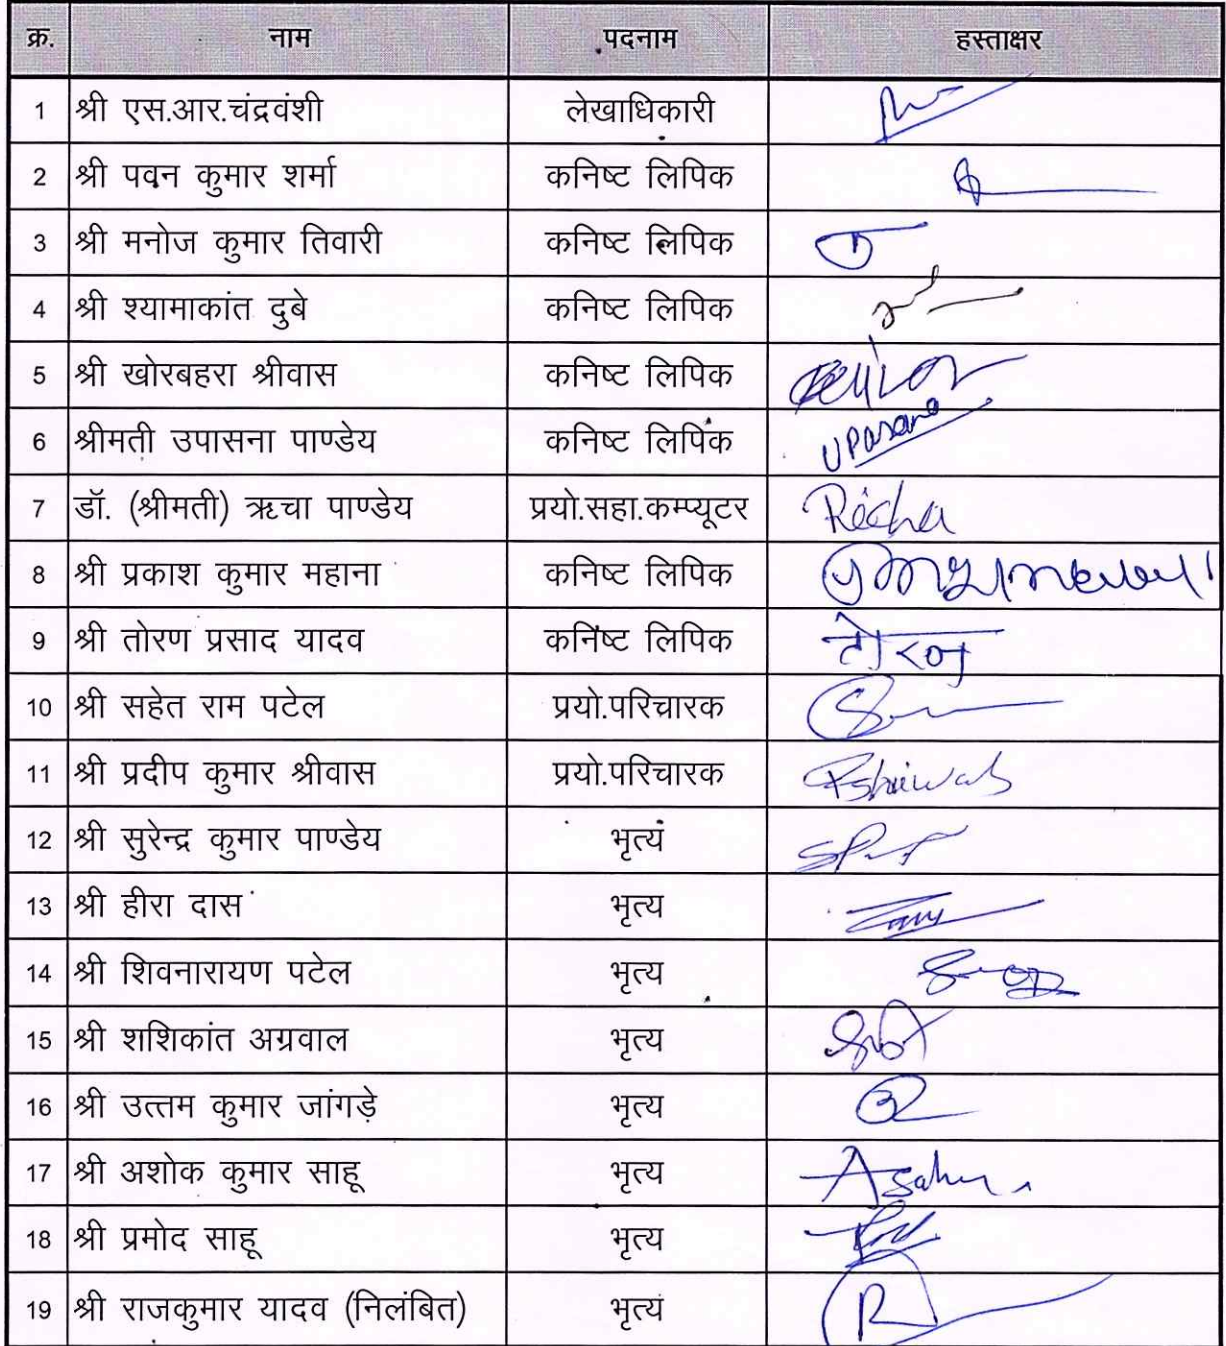 क्र. नाम पदनाम हस्ताक्षर
1 श्री एस.आर.चंद्रवंशी लेखाधिकारी
2 श्री पवन कुमार शर्मा कनिष्ट लिपिक
3 श्री मनोज कुमार तिवारी कनिष्ट लिपिक
4 श्री श्यामाकांत दुबे कनिष्ट लिपिक
5 श्री खोरबहरा श्रीवास कनिष्ट लिपिक
6 श्रीमती उपासना पाण्डेय कनिष्ट लिपिक Upasana
7 डॉ. (श्रीमती) ऋचा पाण्डेय प्रयो.सहा.कम्प्यूटर Richa
8 श्री प्रकाश कुमार महाना कनिष्ट लिपिक
9 श्री तोरण प्रसाद यादव कनिष्ट लिपिक तोरन
10 श्री सहेत राम पटेल प्रयो.परिचारक
11 श्री प्रदीप कुमार श्रीवास प्रयो.परिचारक Pshriwas
12 श्री सुरेन्द्र कुमार पाण्डेय भृत्य
13 श्री हीरा दास भृत्य
14 श्री शिवनारायण पटेल भृत्य
15 श्री शशिकांत अग्रवाल भृत्य
16 श्री उत्तम कुमार जांगड़े भृत्य
17 श्री अशोक कुमार साहू भृत्य Asahu
18 श्री प्रमोद साहू भृत्य
19 श्री राजकुमार यादव (निलंबित) भृत्य R